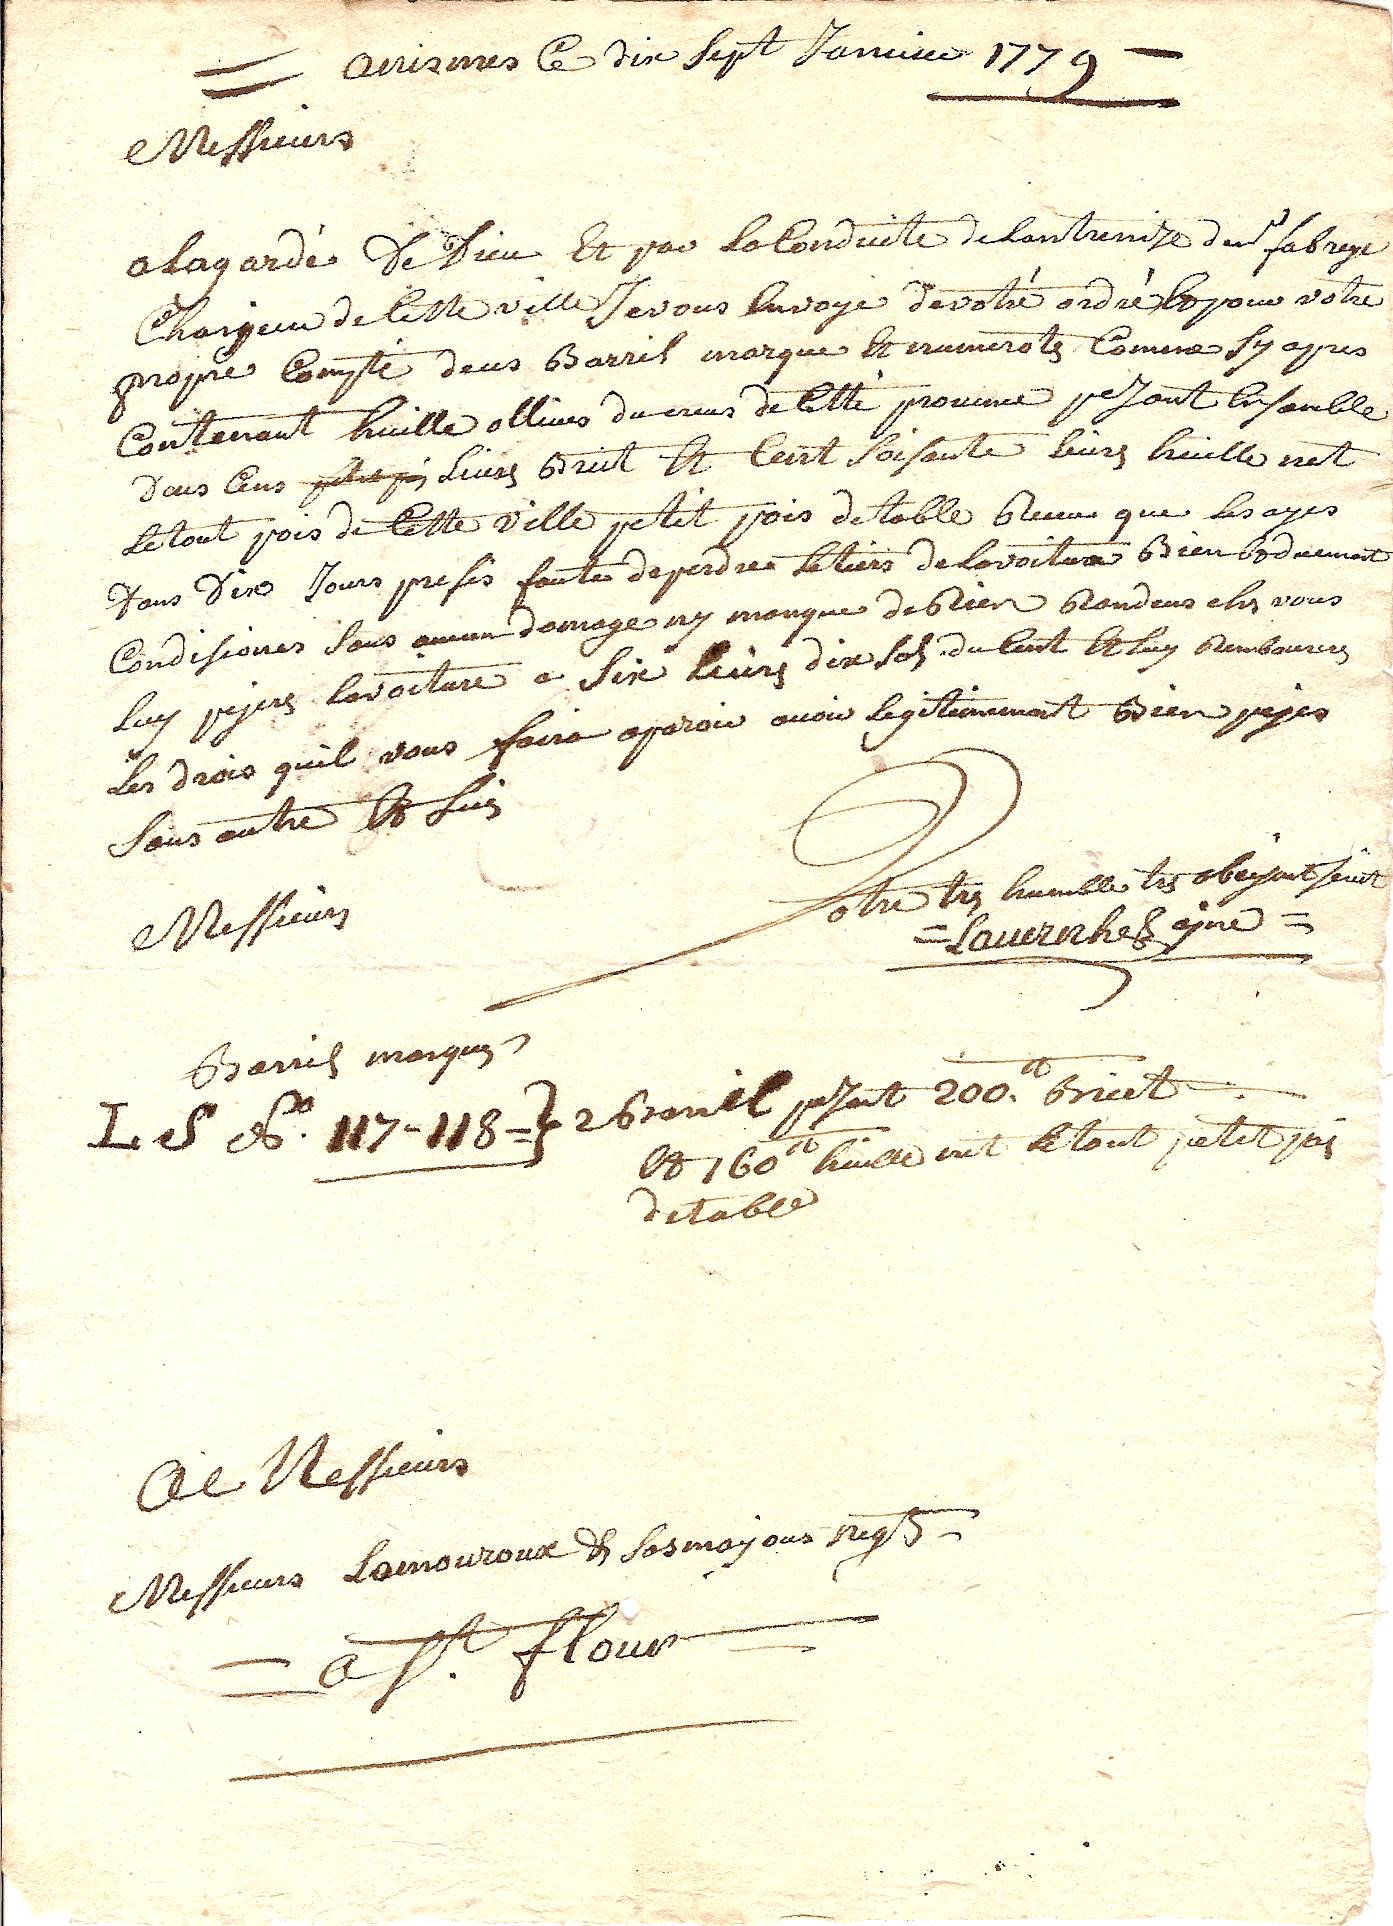 anismes Ce dix Sept Janvier 1779
Messieurs
a Lagarde De Dieu Et par La Conduite de Lantremize de Sr fabrege
Chargeur de Cette ville Je vous Envoye de votre ordre Et pour votre
propre Compte deus Barril marque Et numerotes Comme Sy apres
Contenant huille ollives du creus de Cette provinse pezant Ensemble
Deus Cens Livres Brut Et Cent Soisante Livres huille net
Le tout pois de Cette ville petit pois de table Reseue que Les ayes
Dans Dix Jours presis faute de perdre Le tiers de La voiture Bien Et duement
Condisiones Sans aucun domage ny manque de Rien Randeus ches vous
Luy peyeres La voiture a Six Livres dix Sols du Cent Et Luy Rembourseres
Les drois quil vous faira aparoir avoir Legitimement Bien peyes
Sans autre Et Suis
Messieurs
Votre tres humble tres obeysant servit
= Lavernhes ayne =
Barrils marques
L S No. 117 - 118 = } 2 Barril pezant 200 lb Brut
Et 160 lb huille net Le tout petit pois
de table
A Messieurs
Messieurs Lamouroux & Lasmayous negts
= à St. flour =